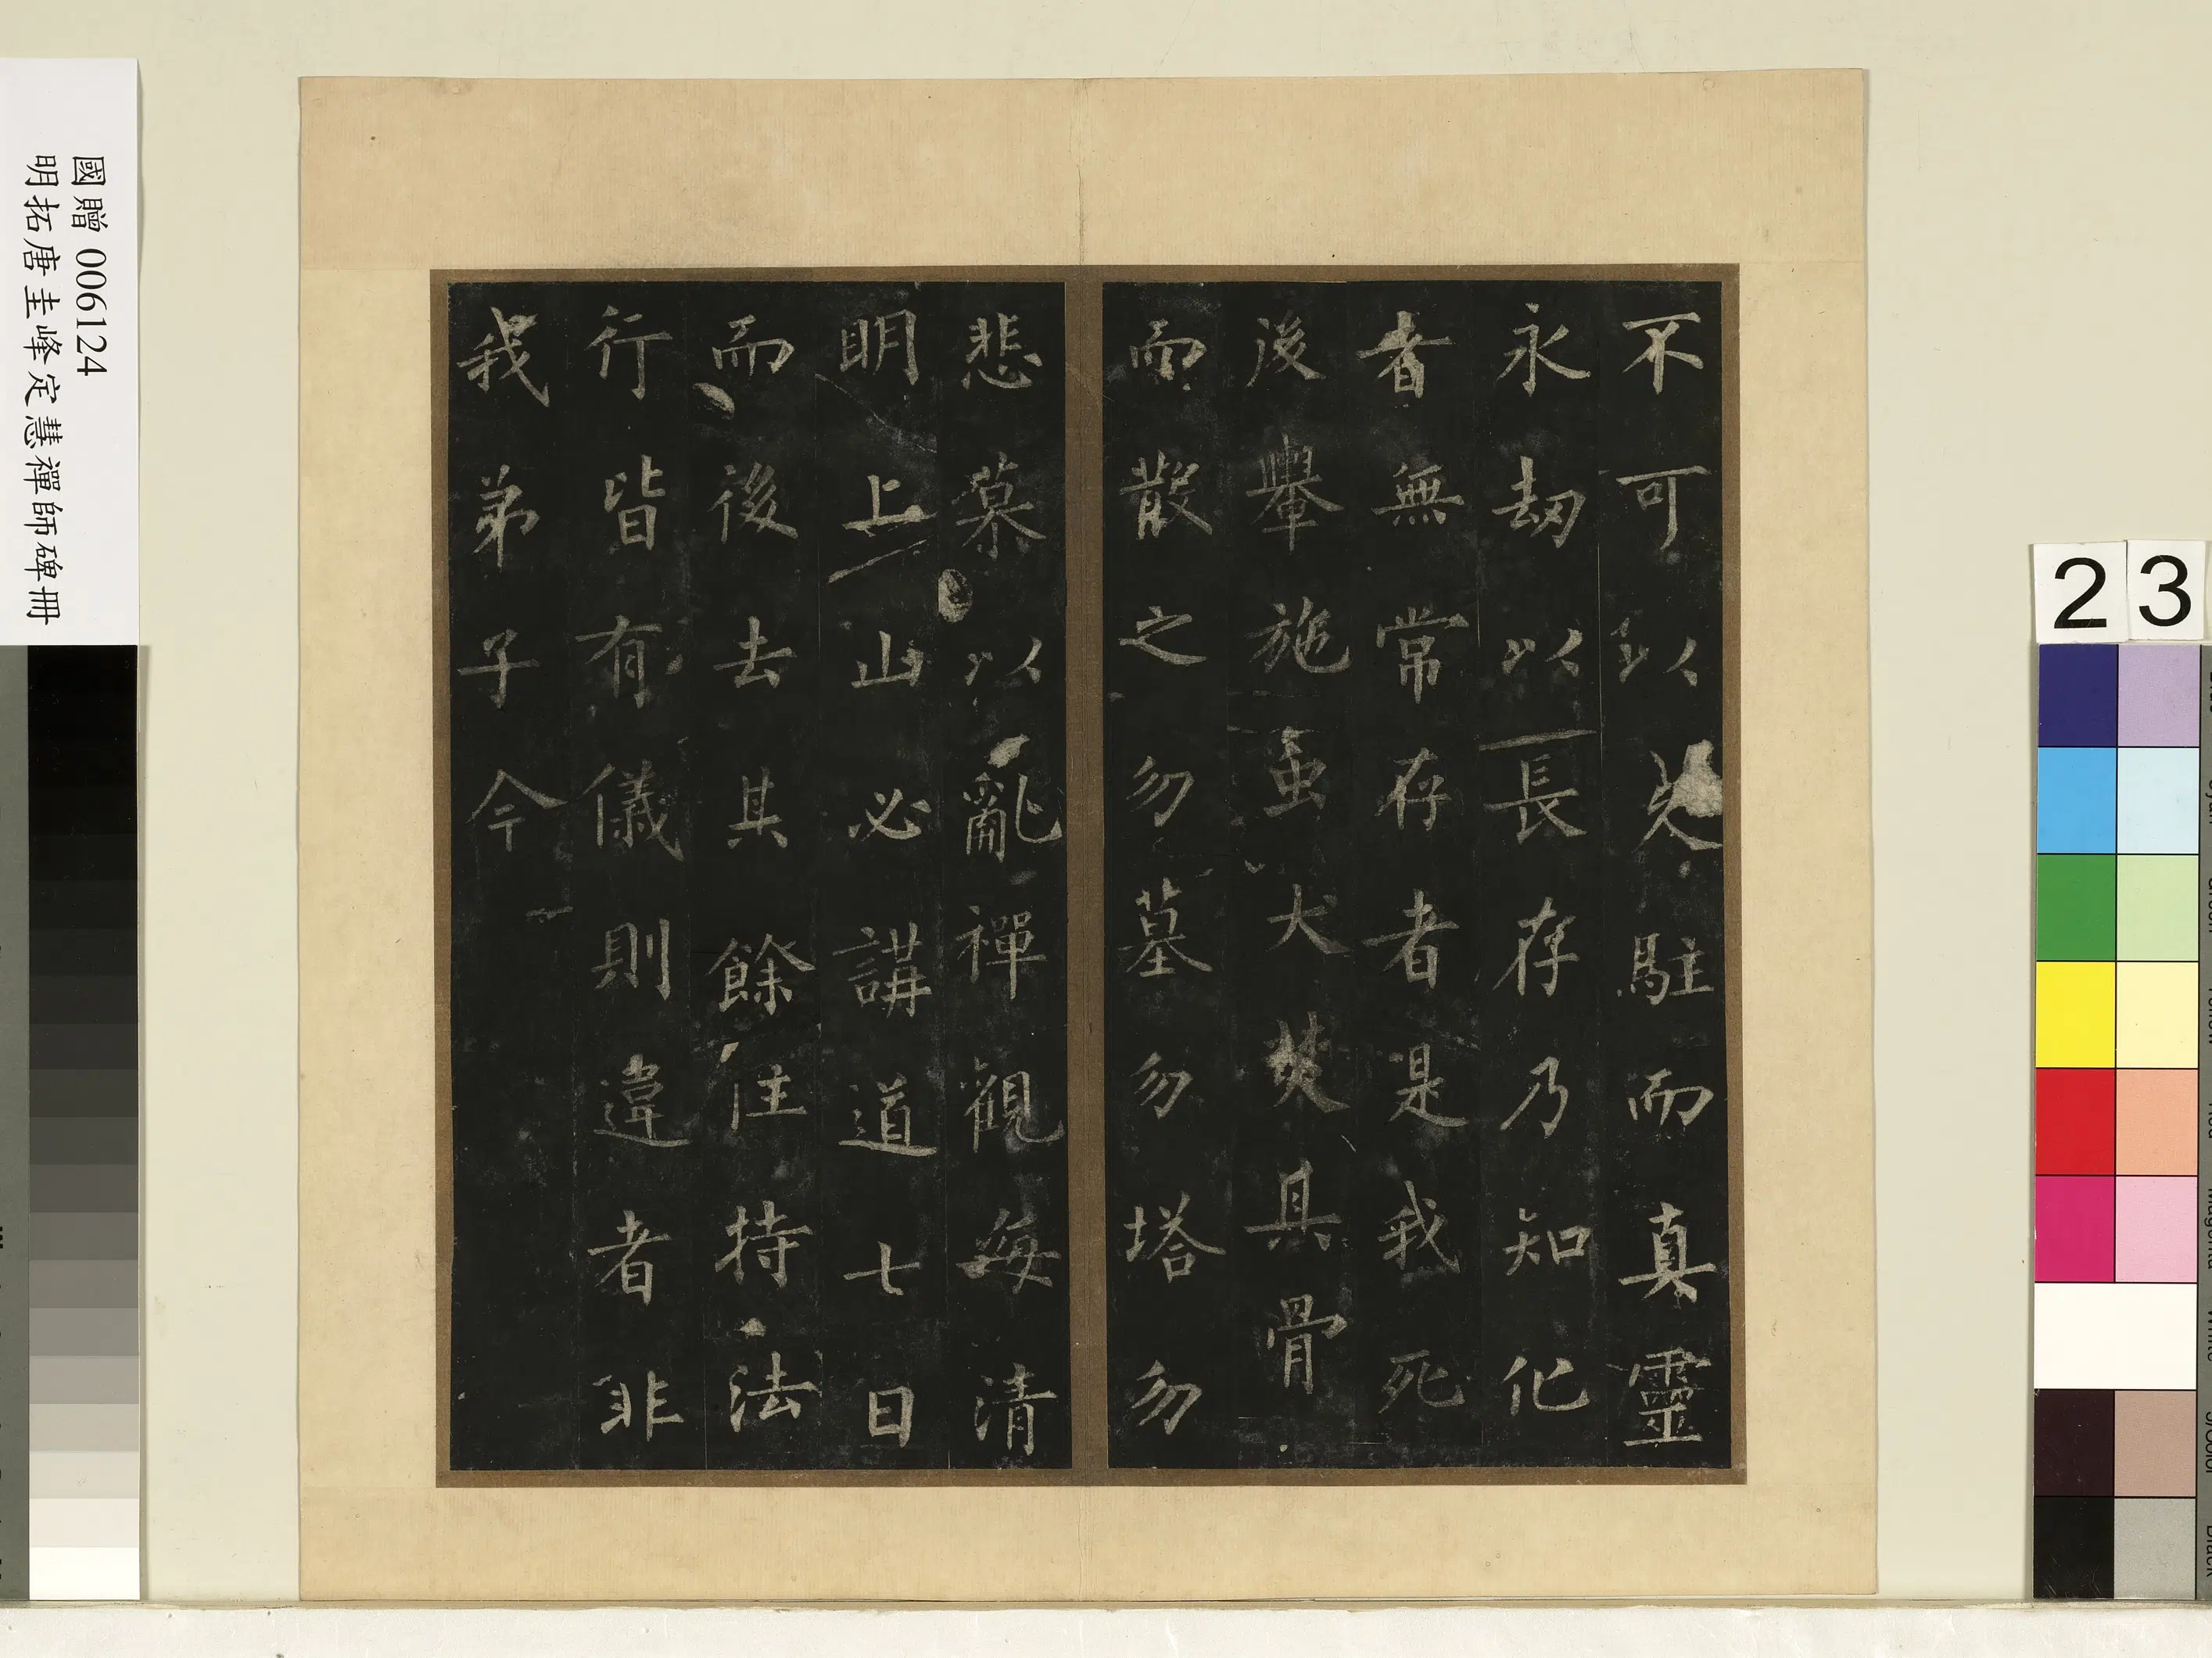 國贈 006124
明拓唐圭峰定慧禪師碑冊
23
不可以久駐而真靈
永劫以長存乃知化
者無常存者是我死
後轝施虫犬焚其骨
而散之勿墓勿塔勿
悲慕以亂禪觀每清
明上山必講道七日
而後去其餘住持法
行皆有儀則違者非
我弟子今